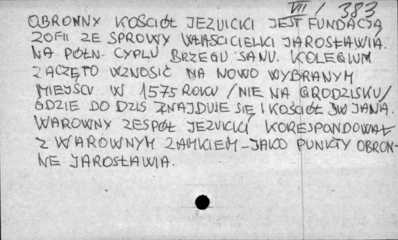 VII / 383
OBRONNY KOŚCIÓŁ JEZUICKI JEST FUNDACJĄ
ZOFII ZE SPROWY WŁAŚCICIELKI JAROSŁAWIA.
NA PÓŁN. CYPLU BRZEGU SANU. KOLEGIUM
ZACZĘTO WZNOSIĆ NA NOWO WYBRANYM
MIEJSCU W 1575 ROKU /NIE NA GRODZISKU/
GDZIE DO DZIŚ ZNAJDUJE SIĘ I KOŚCIÓŁ ŚW JANA.
WAROWNY ZESPÓŁ JEZUICKI KORESPONDOWAŁ
Z WAROWNYM ZAMKIEM-JAKO PUNKTY OBRON-
NE JAROSŁAWIA.